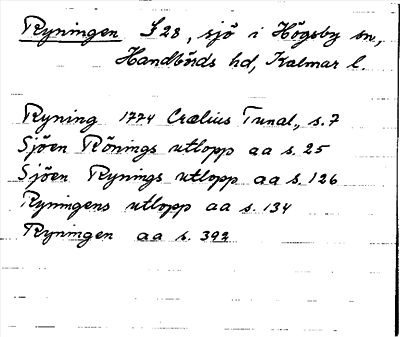 Ryningen S 28, sjö i Högsby sn,
Handbörds hd, Kalmar l.
Ryning 1774 Crælius Tunal., s. 7
Sjöen Rönings utlopp aa s. 25
Sjöen Rynings utlopp aa s. 126
Ryningens utlopp aa s. 134
Ryningen aa s. 392